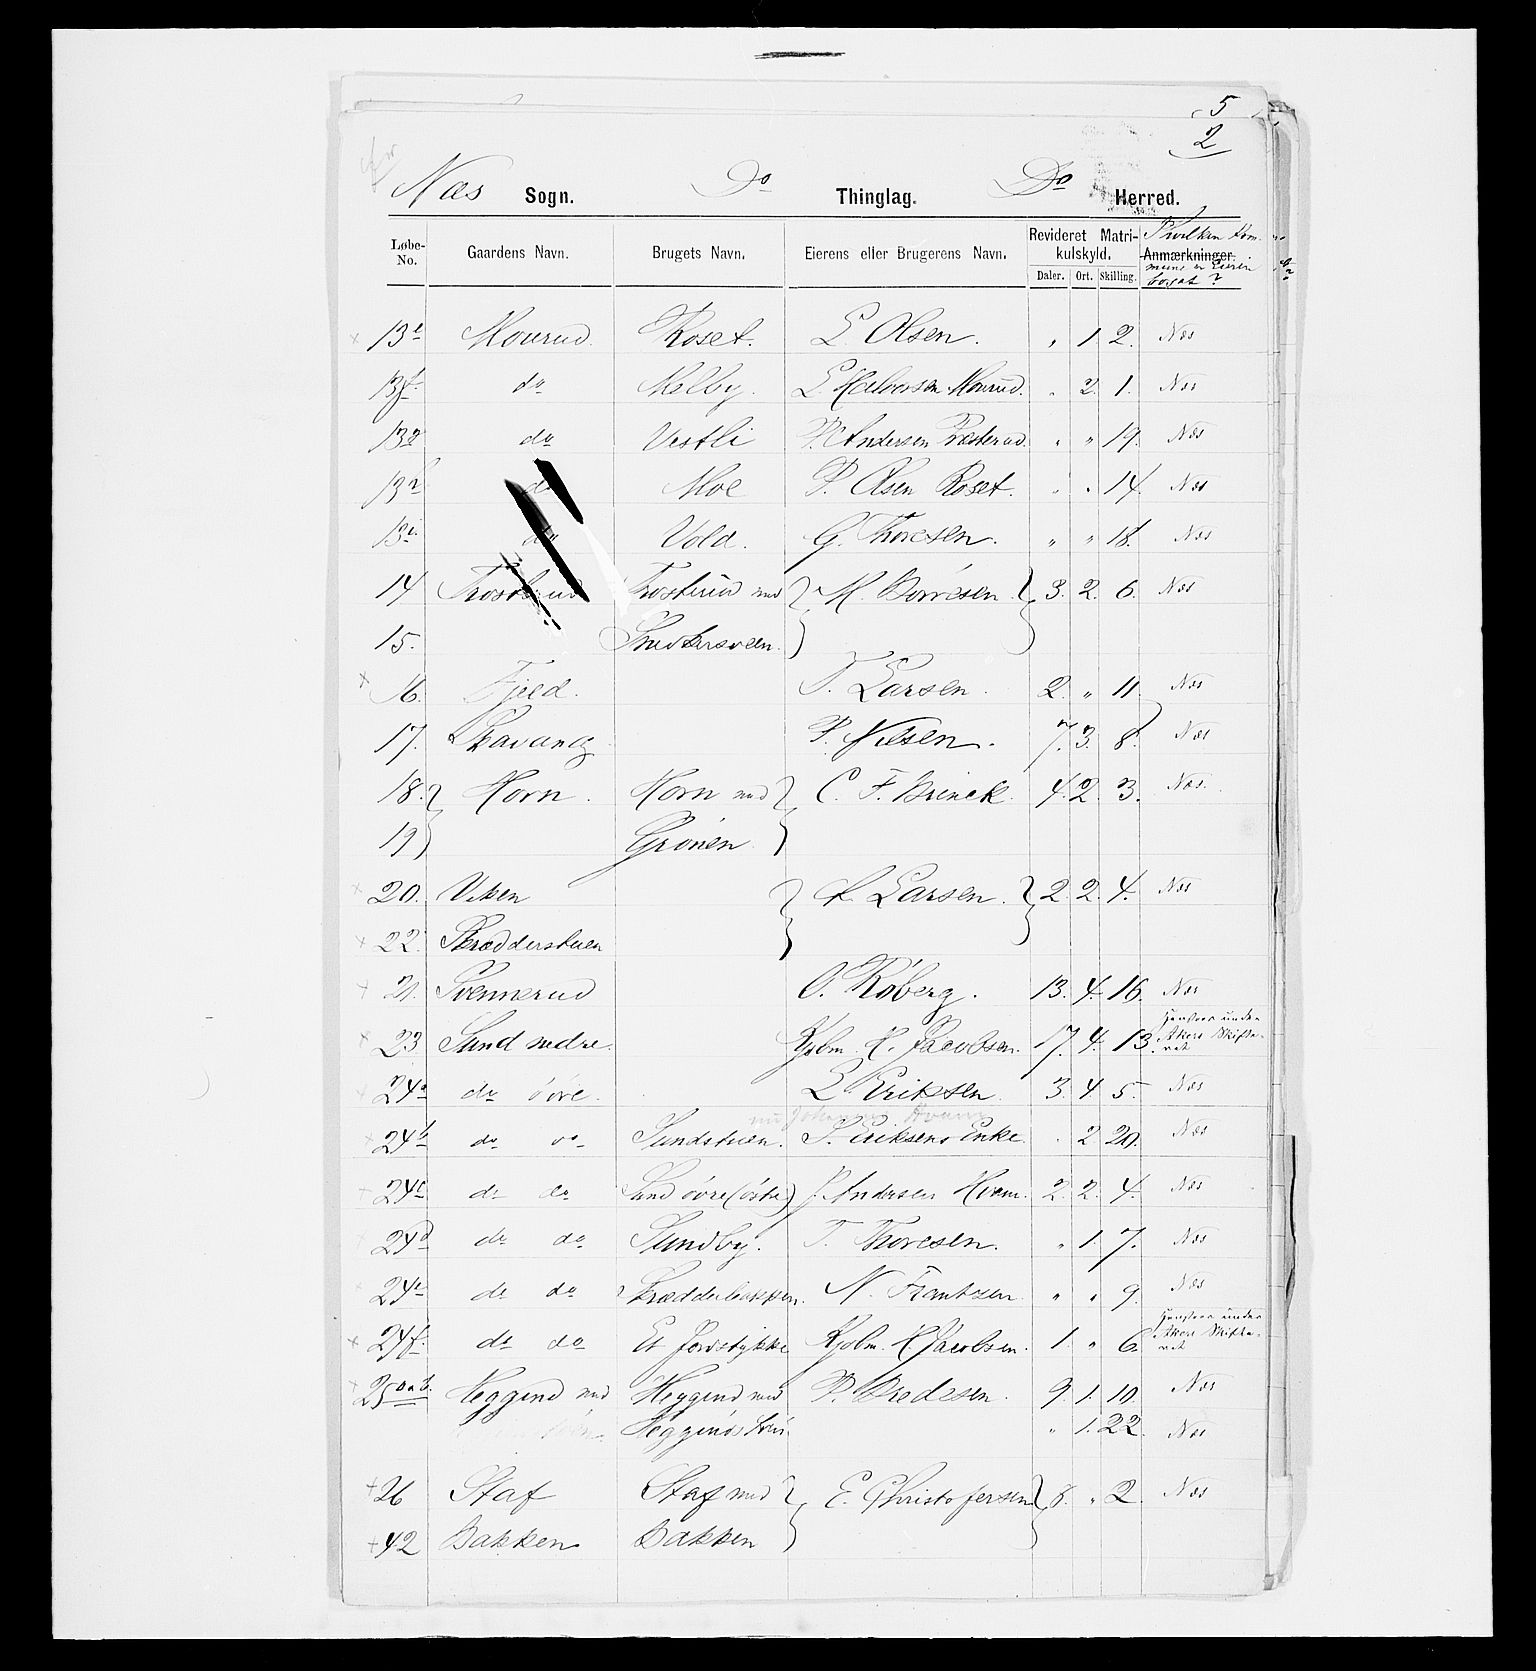 5
2
Næs Sogn. Do Thinglag. Do Herred.
Løbe-No. Gaardens Navn. Brugets Navn. Eierens eller Brugerens Navn. Revideret Matrikulskyld. Daler. Ort. Skilling. Anmærkninger. I hvilken Kommune er Eieren bosat ?
13e Mourud. Roset. L. Olsen. " 1. 2. Næs
13f do Melby. L. Halvorsen Mourud. " 2. 1. Næs
13g do Vestli P. Andersen Præsterud. " " 19. Næs
13h do Moe P. Olsen Roset. " " 14. Næs
13i do Vold. G. Thoresen. " " 18. Næs
14 Trosterud Trosterud med M. Borresen. 3. 2. 6. Næs
15. Snedkersveen.
16. Fjeld. T. Larsen. 2. " 11. Næs
17. Skavang P. Nilsen. 7. 3. 8. Næs
18. Horn. Horn med C. F. Brinck. 4. 2. 3. Næs.
19 Grönen
20. Viken L. Larsen. 2. 2. 4. Næs
22. Skrædderstuen
21. Svennerud O. Röberg. 13. 4. 16. Næs
23 Sund nedre. Kjbm. H. Jacobsen. 17. 4. 13 Henhører under Akers Skifteret
24a do övre. L. Eriksen. 3. 4. 5. Næs
nu Johannes Hvam
24b do do Sundstuen. S. Eriksens Enke. " 2 20. Næs
24c do do Sund övre (östre) J. Andersen Hvam. 2. 2. 4. Næs
24d do do Sundby. T. Thoresen. " 1. 7. Næs
24e do do Skrædderbakken. N. Frantzen " " 9. Næs
24f. do do Et Jordstykke Kjøbm. H. Jacobsen. 1. " 6. Henhører under Akers Skifteret
25a&b. Heggend med Heggend med P. Bredesen. 9. 1. 10. Næs
" 1. 22. Næs
26 Staf Staf med E. Christofersen 8. " 2. Næs
42 Bakken Bakken